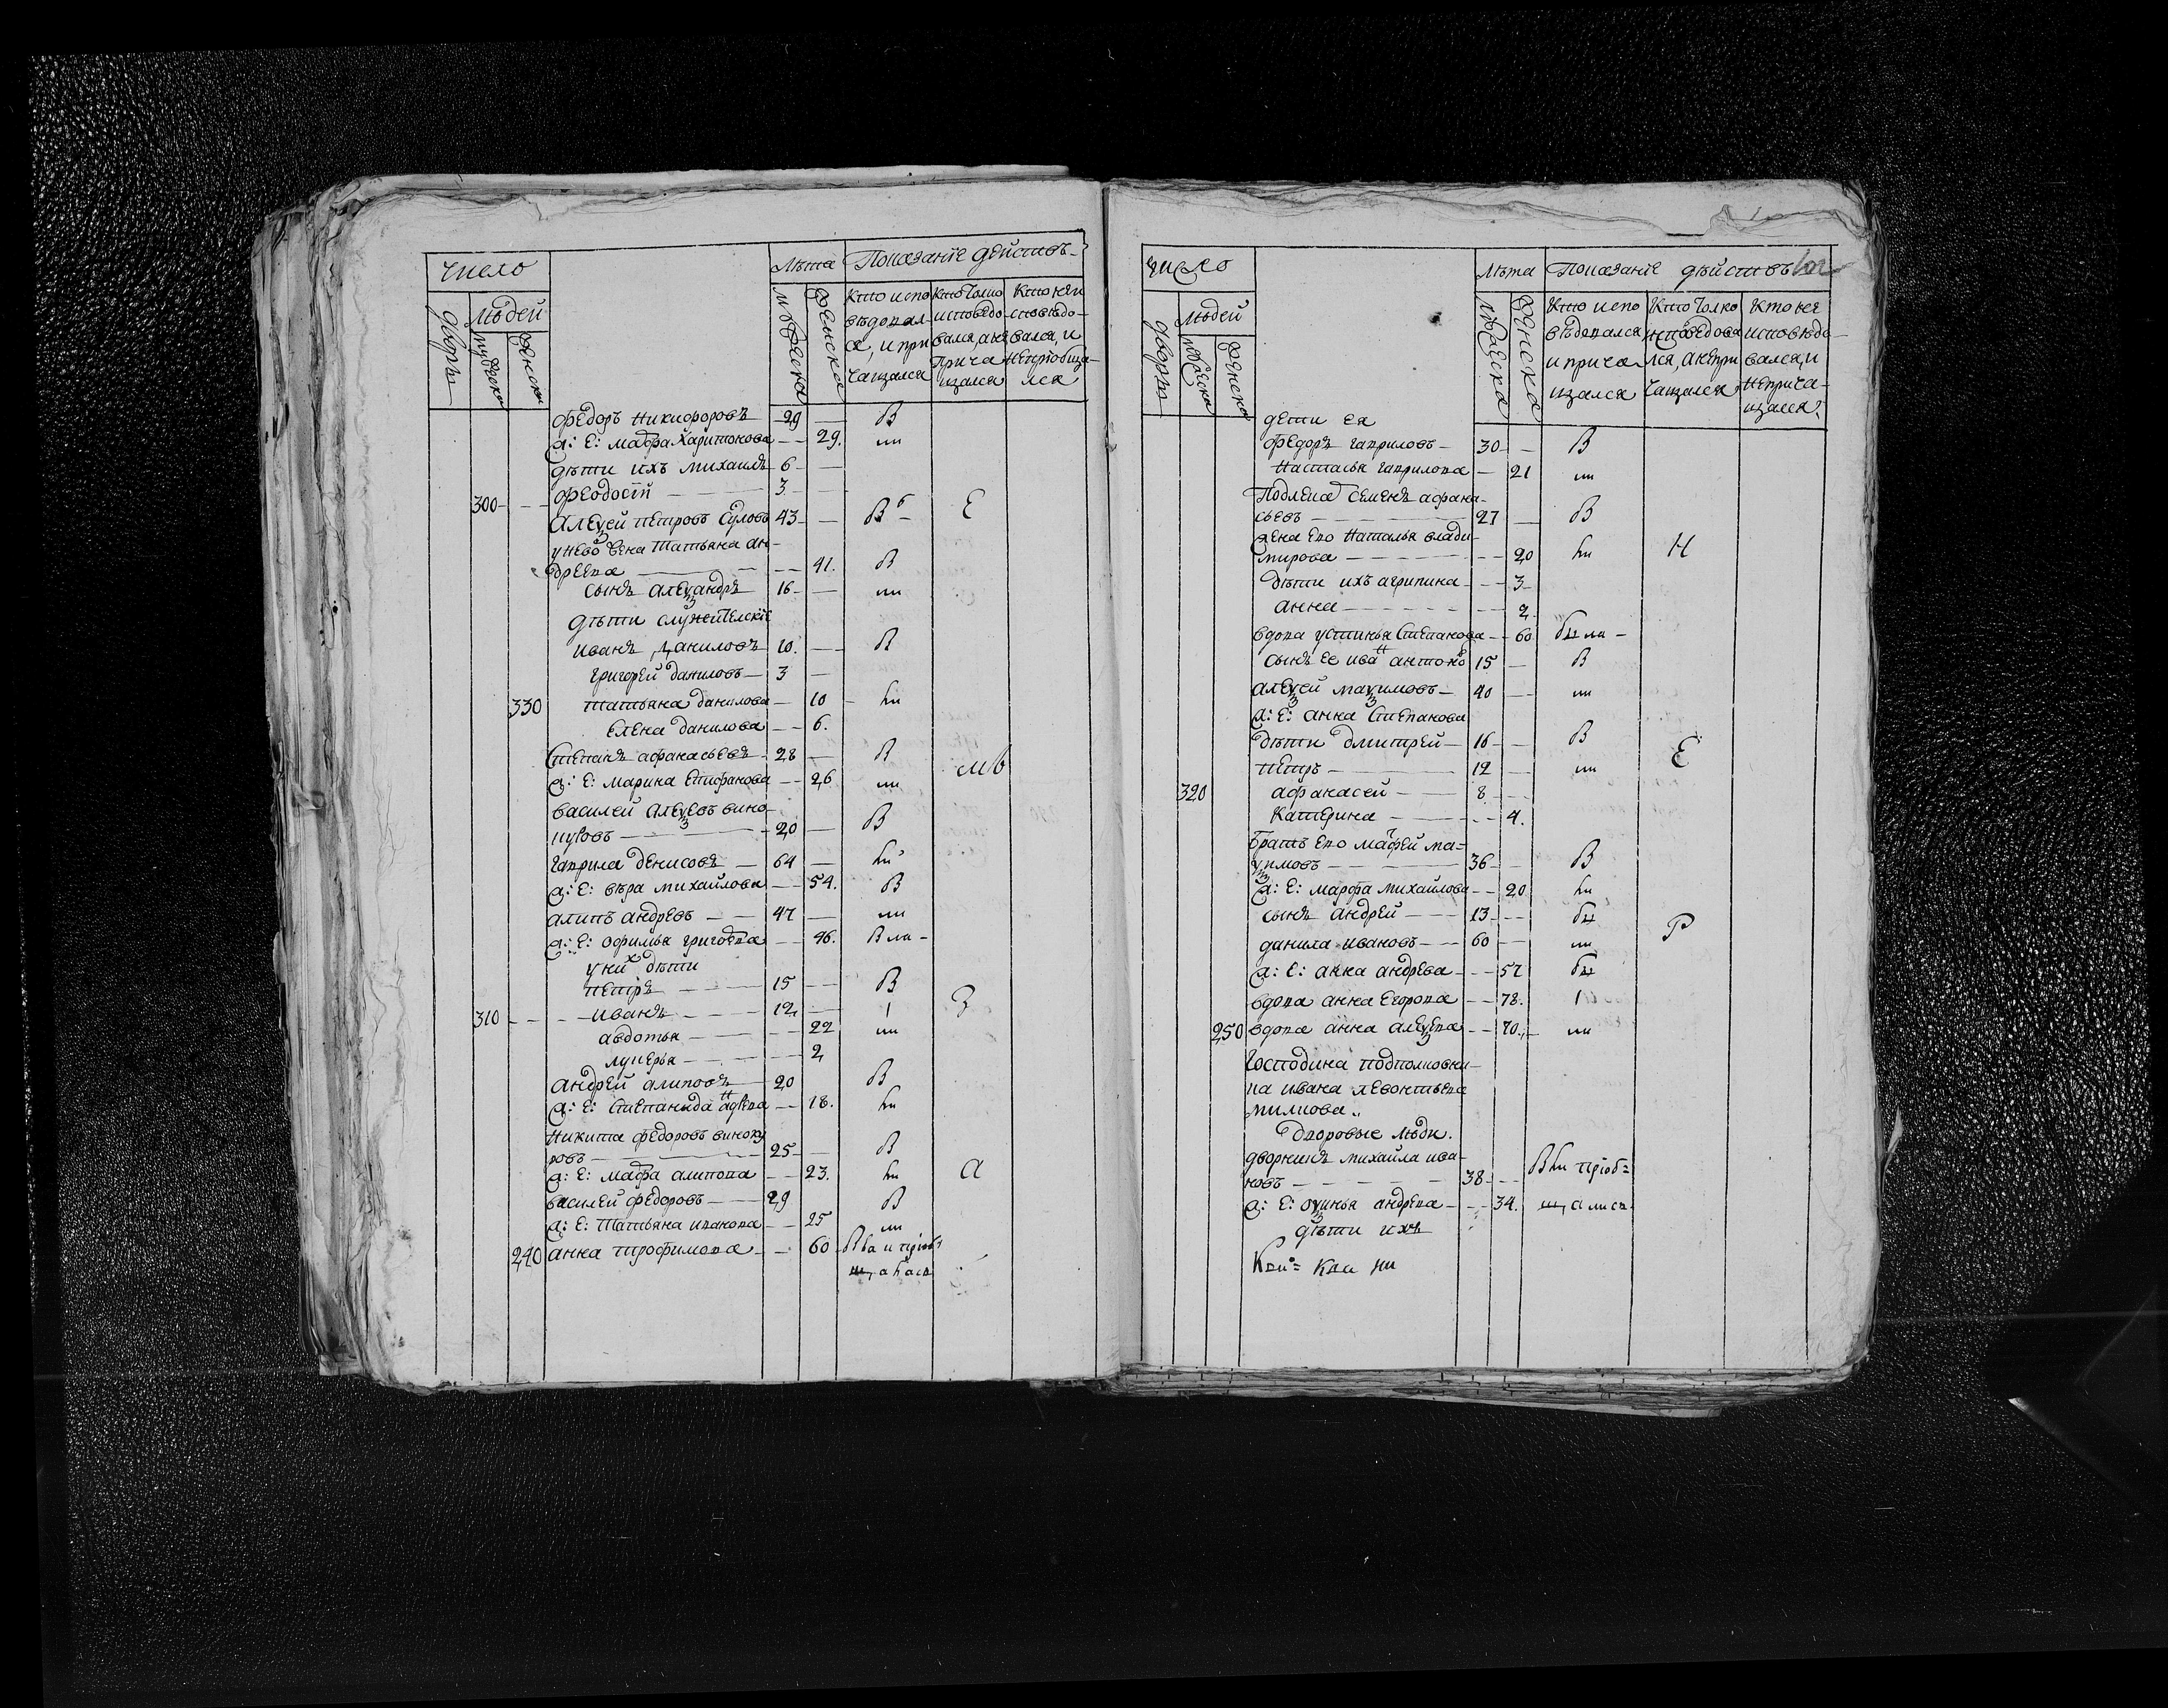 Число
Лѣта Показанїе действъ
людей
дворы
мужеска
женска
мужеска
женска
Кто испо
вѣдовал
ся, и при
чащался
Кто толко
исповедо
вался, а не
прича
щался
Кто не и
сповѣдо-
вался, и
непріобща-
лся
федоръ никифоровъ 29 В
ж: е: мафра харитонова 29. ли
дѣти ихъ михаилъ 6
300 феодосїй 3
алеѯей петровъ суловъ 43 В Е
у нево жена татьяна ан-
дреева 41. В
сынъ алеѯандръ 16 ли
дѣти служителскїе
иванъ даниловъ 10. В
григорей даниловъ 3
330 татьяна данилова 10 ли
елена данилова 6.
степанъ афанасьевъ 28 В
ж: е: марина епифанова 26 ли
василей алеѯевъ вино-
куровъ 20 В
гаврила денисовъ 64 ли
ж: е: вѣра михайлова 54. В
алипъ андревъ 47 ли
ж: е: офимья григоева 46. В ла
у них дѣти
петръ 15 В
310 иванъ 12 З
авдотья 22 ли
лукерья 2
андрей алиповъ 20 В
ж: е: степанида 18. ли
никита федоровъ виноку
ровъ 25 В
ж: е: мафра алипова 23. ли а
василей федоровъ 29 В
ж: е: татьяна иванова 25 ли
240 анна трофимова 60
Число
Лѣта Показанїе дѣйствъ
людей
дворы
мужеска
женска
мужеска
женска
Кто испо
вѣдовался
и прича
щался
Кто толко
исповедова
лся, а непри
чащался
Кто не
исповѣдо-
вался, и
неприча-
щался
дети ея
федоръ гавриловъ 30 В
настасья гаврилова 21 ли
Подлева семенъ афана-
сьевъ 27 В
жена ево наталья влади-
мирова 20 ли Н
дѣти ихъ агрипина 3
анна 2
вдова устинья степанова 60
сынъ ее ива н антоно в 15 В
алеѯей маѯимовъ 40 ли
ж: е: анна степанова
дѣти дмитрей 16 В Е
петръ 12 ли
320 афанасей 8
катерина 4.
братъ ево матфей ма-
ѯимовъ 36 В
ж: е: марфа михайлова 20 ли
сынъ андрей 13
данила ивановъ 60 ли Р
ж: е: анна андрева 57
вдова анна егорова 78.
250 вдова анна алеѯева 70. ли
Господина подполковни-
ка ивана левонтьева
милкова
дворовые люди.
дворникъ михайла ива-
новъ 38 пріоб=
ж: е: оѯинья андрева 34.
дѣти ихъ